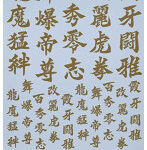 霞牙闘雅
麗虎拳
秀零志
舞爆帝尊
龍魔猛絆
霞牙闘雅
改麗虎拳
百秀零志
舞爆帝尊
龍魔猛絆